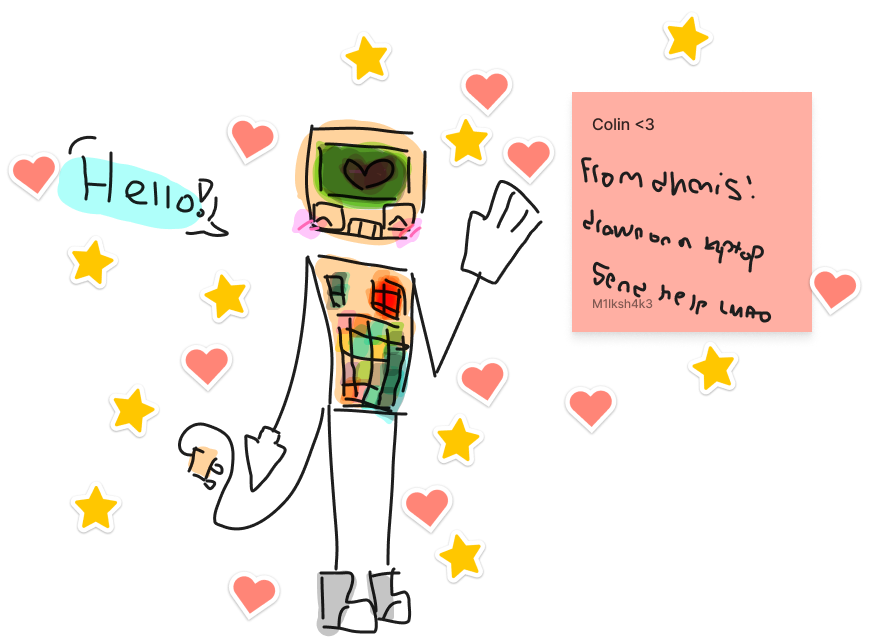 Hello!
Colin <3
From dhmis!
drawn on a laptop
Send help LMAO
M1lksh4k3